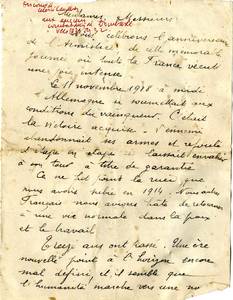 Mesdames, Messieurs
Nous célébrons l'anniversaire
de l'Armistice, de cette mémorable
journée où toute la France vécut
une joie intense.
Le 11 novembre 1918 à midi
l'Allemagne se soumettait aux
conditions du vainqueur. C'était
la victoire acquise. L'ennemi
abandonnait ses armes et
d'étape en étape laissait
à son tour à titre de garantie
Ce fut tout la ruée que
nous avions subie en 1914. Nous autres
Français nous avions hâte de retourner
à une vie normale dans la paix
et le travail
ans ont passé. Une ère
nouvelle point à l'horizon encore
mal défini, et il semble que
l'humanité marche vers une